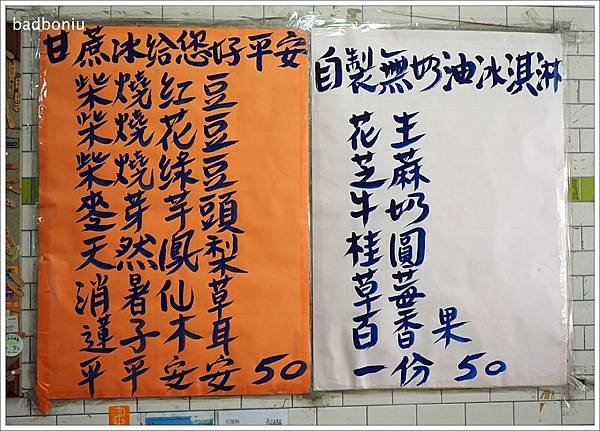 badboniu
甘蔗冰給您好平安
柴燒紅豆
柴燒花豆
柴燒綠豆
麥芽芋頭
天然鳳梨
消暑仙草
蓮子木耳
平平安安 50
自製無奶油冰淇淋
花生
芝蔴
牛奶
桂圓
草莓
百香果
一份 50